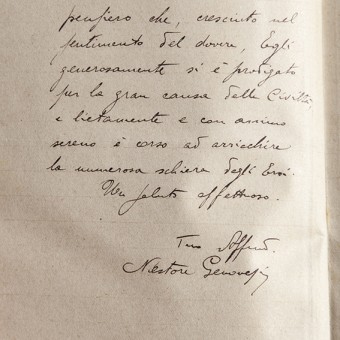 pensiero che, cresciuto nel
sentimento del dovere, Egli
generosamente si è prodigato
per la gran causa della Civiltà
e lietamente e con animo
sereno è corso ad arricchire
la numerosa schiera degli Eroi.
Un saluto affettuoso.
Tuo Affmo.
Nestore Genovesi